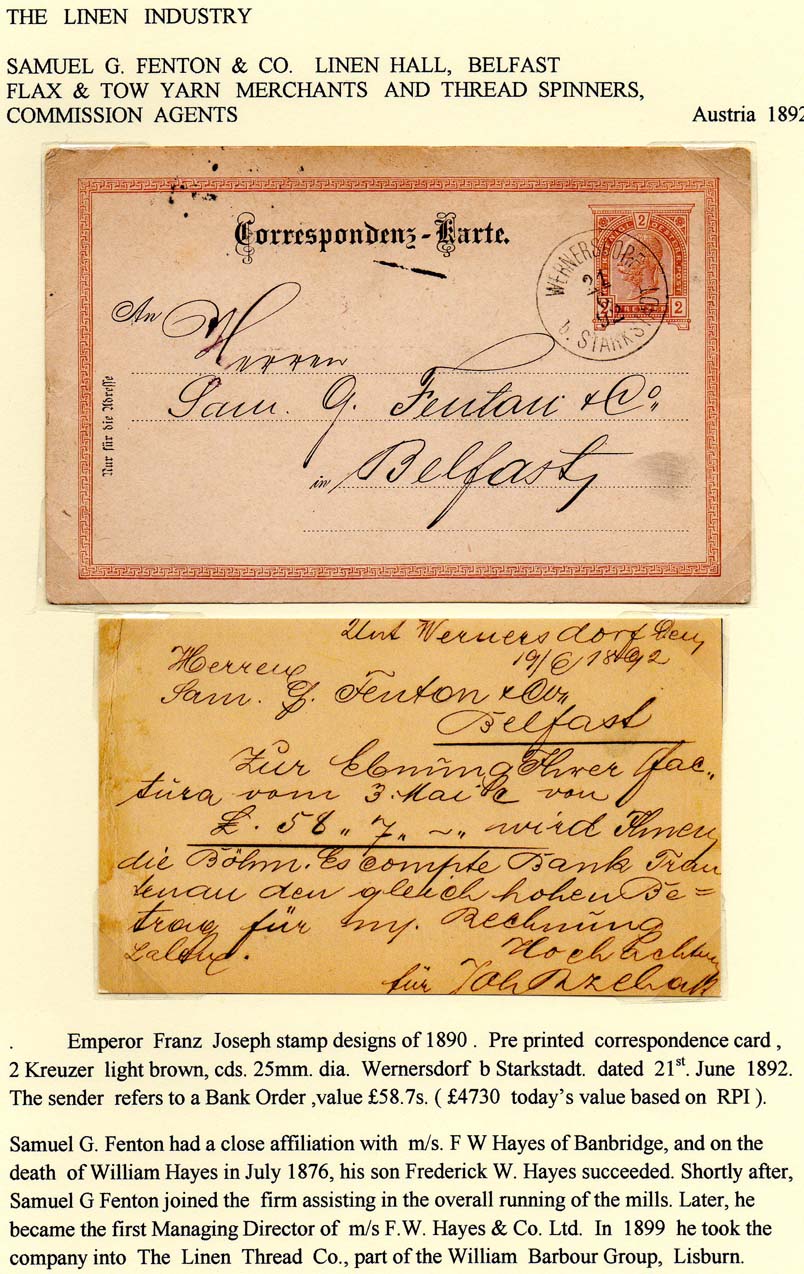 THE LINEN INDUSTRY
SAMUEL G. FENTON & CO. LINEN HALL, BELFAST
FLAX & TOW YARN MERCHANTS AND THREAD SPINNERS,
COMMISSION AGENTS Austria 1892
Correspondenz-Karte.
2
2 2
WERNERSDORF
21
6
92
b. STARKSTADT
An Herren
Sam. G. Fenton & Co
in Belfast
Nur für die Adresse
Unt Wernersdorf den
Herren 19/6 1892
Sam. G. Fenton & Co
Belfast
Zur Ebnung Ihrer Fac„
tura vom 3. Mai von
£. 58 „ 7 „ ~ „ wird Ihnen
die Böhm. Escompte Bank Trau
tenau den gleich hohen Be=
trag für m/. Rechnung
Hochachtend
für Joh
. Emperor Franz Joseph stamp designs of 1890 . Pre printed correspondence card ,
2 Kreuzer light brown, cds. 25mm. dia. Wernersdorf b Starkstadt. dated 21st. June 1892.
The sender refers to a Bank Order ,value £58.7s. ( £4730 today's value based on RPI ).
Samuel G. Fenton had a close affiliation with m/s. F W Hayes of Banbridge, and on the
death of William Hayes in July 1876, his son Frederick W. Hayes succeeded. Shortly after,
Samuel G Fenton joined the firm assisting in the overall running of the mills. Later, he
became the first Managing Director of m/s F.W. Hayes & Co. Ltd. In 1899 he took the
company into The Linen Thread Co., part of the William Barbour Group, Lisburn.